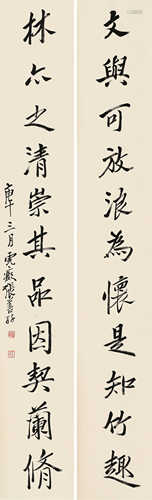 文與可放浪為懷是知竹趣
林亦之清崇其品因契蘭脩
庚午三月